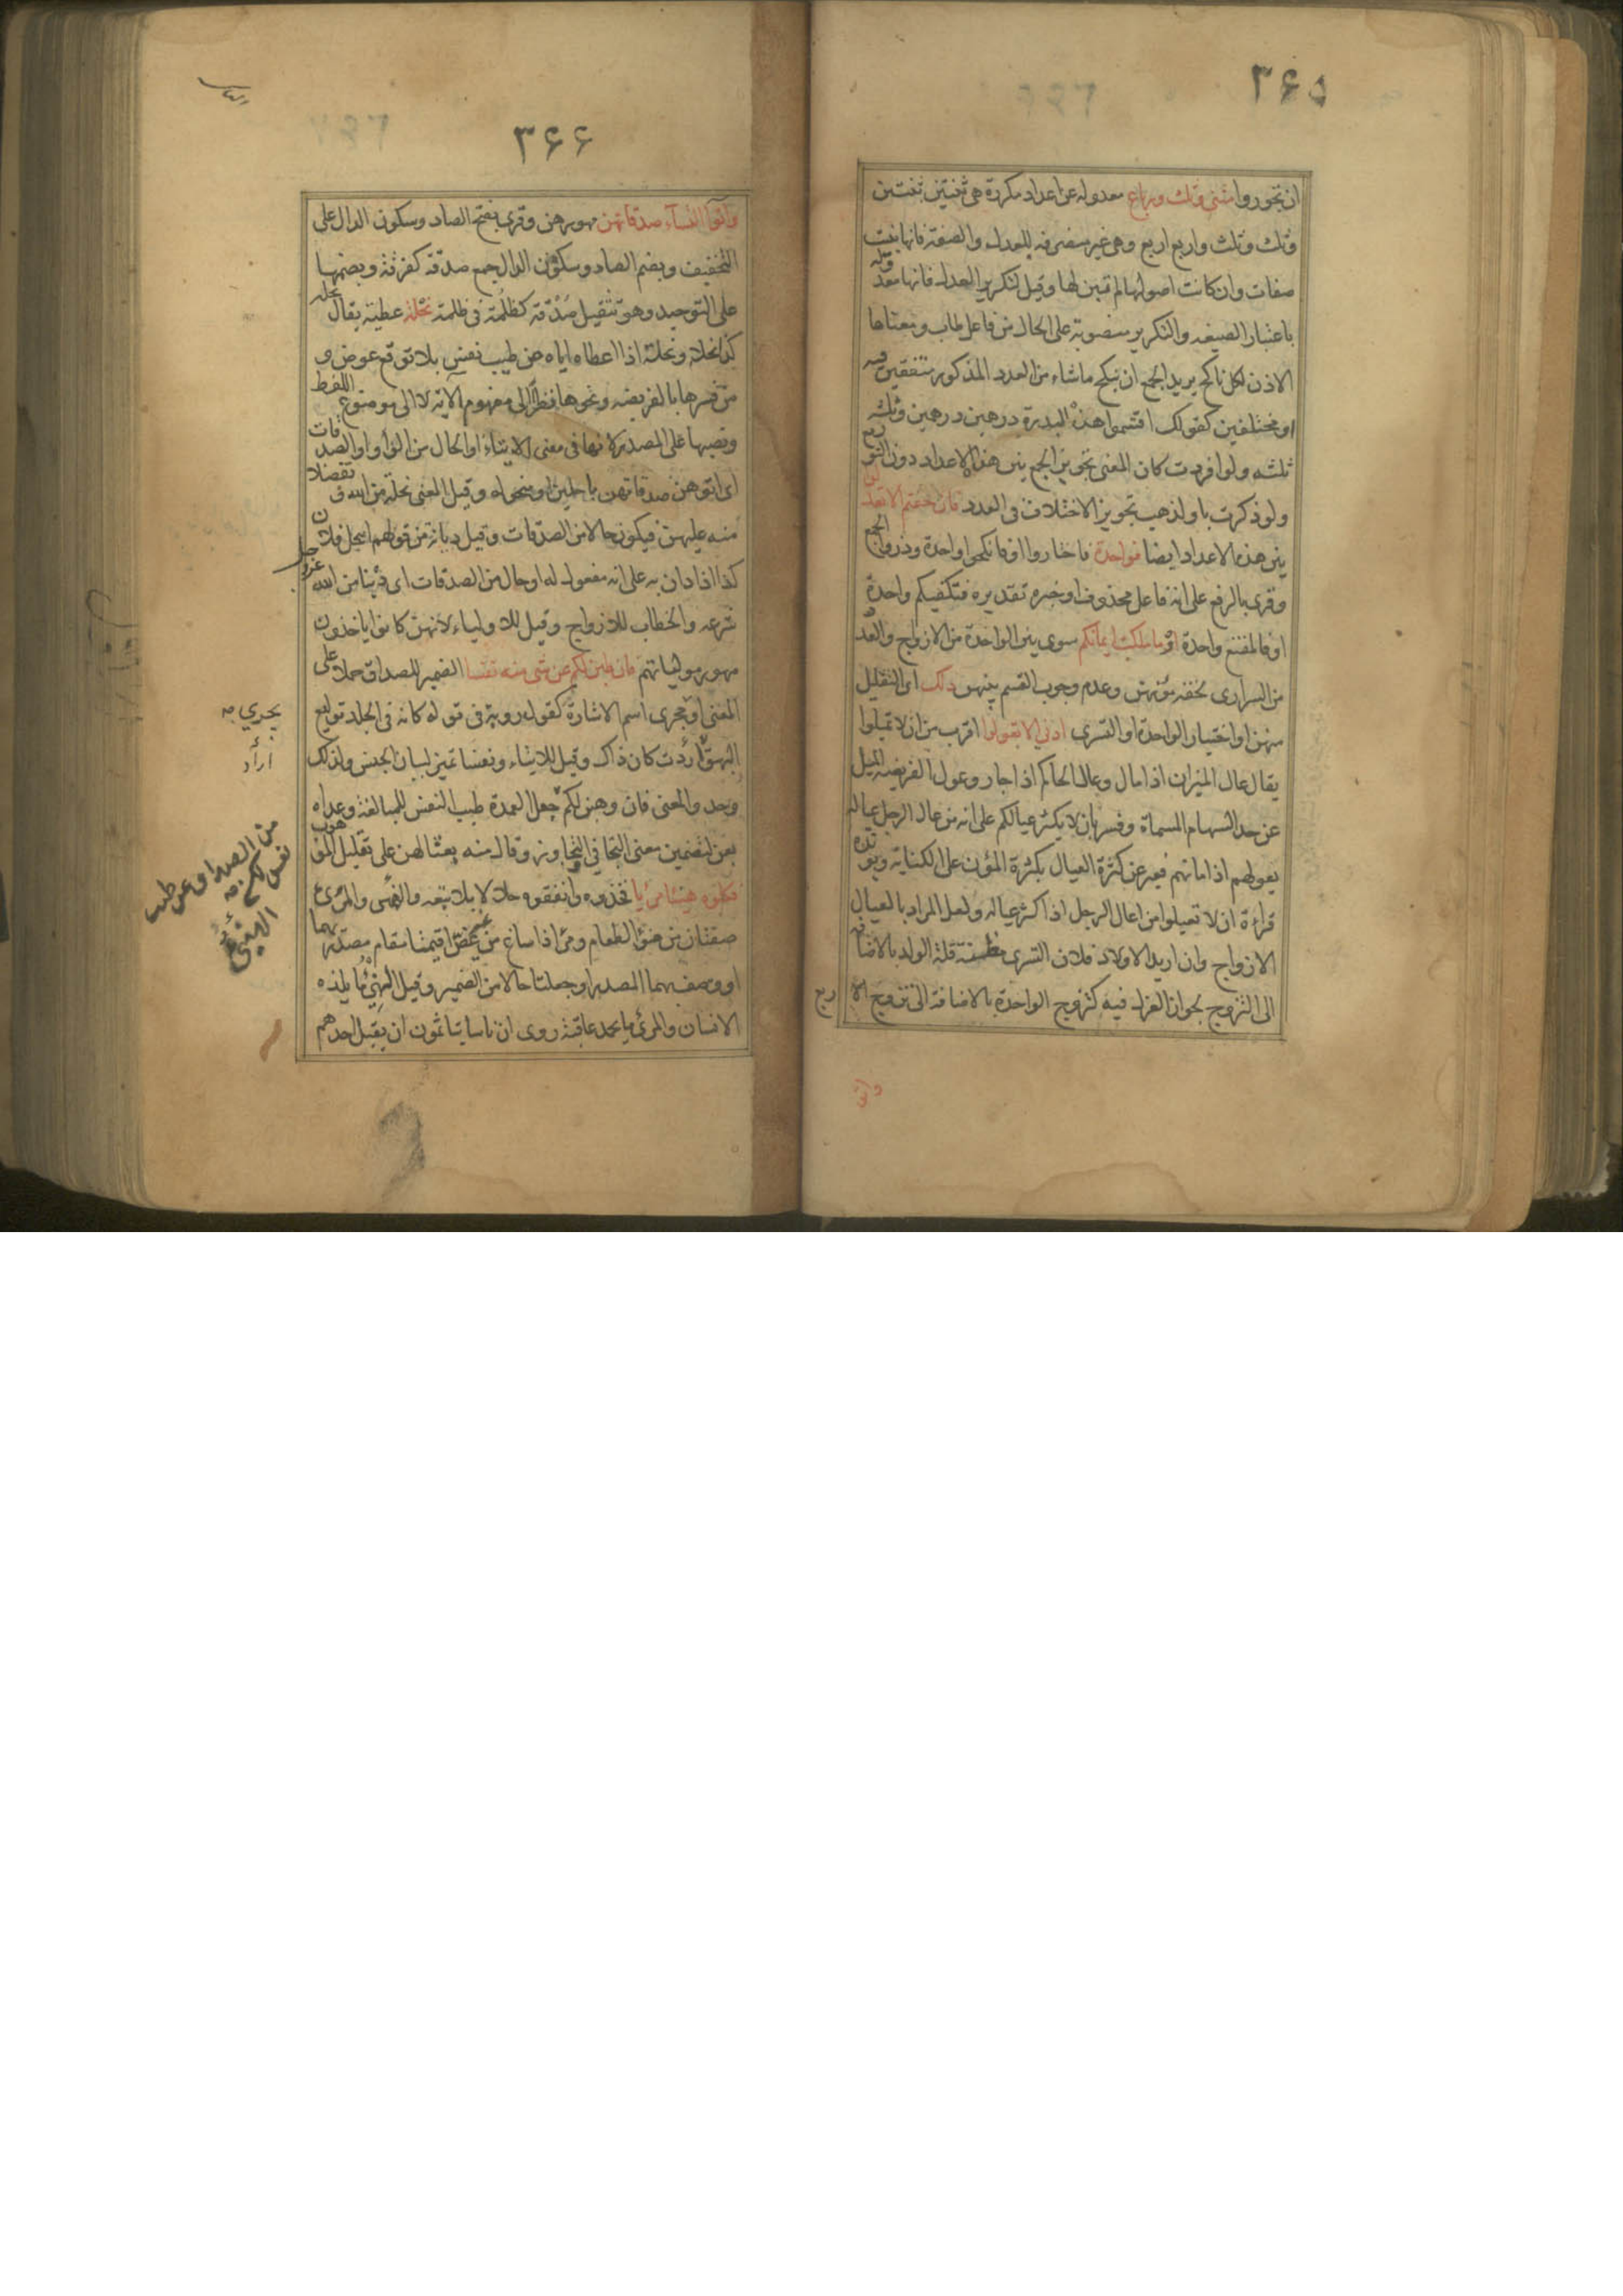 ۳۶۵
ان تجوروا مثنى وثلث ورباع معدوله عن اعداد مكررة هى ثنتين ثنتين
وثلث وثلث واربع اربع وهى غير منصرفه للعدل والصفة فانها بنيت
صفات وان كانت اصولها لم تبن لها وقيل لتكرير العدل فانها معدولة
باعتبار الصيغه والتكرير منصوبة على الحال من فاعل طاب ومعناها
الاذن لكل ناكح يريد الجمع ان ينكح ماشاء من العدد المذكور متفقين فيه
او مختلفين كقولك اقتسموا هذه البدرة درهمين درهمين وثلثه
ثلثه ولو افردت كان المعنى تجويز الجمع بين هذه الاعداد دون التوزيع
ولو ذكرت باو لذهب تجويز الاختلاف فى العدد فان خفتم الا تعدلوا
بين هذه الاعداد ايضا فواحدة فاختاروا او فانكحوا واحدة وذروا الجمع
وقرى بالرفع على انه فاعل محذوف او خبره تقديره فتكفيكم واحدة
او فالمقنع واحدة او ما ملكت ايمانكم سوى بين الواحدة من الازواج والعدد
من السرارى لخفه مؤنهن وعدم وجوب القسم بينهن ذلك اى التقليل
منهن او اختيار الواحدة او التسرى ادنى الا تعولوا اقرب من ان لا تميلوا
يقال عال الميزان اذا مال وعال الحاكم اذا جار وعول الفريضه الميل
عن حد السهام المسماة وفسر بان لا يكثر عيالكم على انه من عال الرجل عياله
يعولهم اذا مانهم فعبر عن كثرة العيال بكثرة المؤن على الكناية ويؤيده
قراءة ان لا تعيلوا من اعال الرجل اذا كثر عياله ولعل المراد بالعيال
الازواج وان اريد الاولاد فلان التسرى مظنة قلة الولد بالاضافه
الى التزوج لجواز العزل فيه كتزوج الواحدة بالاضافة الى تزوج الاربع
واتوا
۳۶۶
واتوا النساء صدقاتهن مهورهن وقرى بفتح الصاد وسكون الدال على
التخفيف وبضم الصاد وسكون الدال جمع صدقة كغرفة وبضمها
على التوحيد وهو تثقيل صدقة كظلمة فى ظلمة نحلة عطية يقال نحله
كذا نحلة ونحلا اذا اعطاه اياه عن طيب نفس بلا توقع عوض و
من فسرها بالفريضه ونحوها نظر الى مفهوم الاية لا الى موضوع اللفظ
ونصبها على المصدر لانها فى معنى الايتاء او الحال من الواو او الصدقات
اى اتوهن صدقاتهن ناحلين او منحوله وقيل المعنى نحلة من الله وتفضلا
منه عليهن فيكون حالا من الصدقات وقيل ديانة من قولهم انتحل فلان
كذا اذا دان به على انه مفعول له او حال من الصدقات اى دينا من الله عز وجل
شرعه والخطاب للازواج وقيل للاولياء لانهم كانوا ياخذون
مهور مولياتهم فان طبن لكم عن شى منه نفسا الضمير للصداق حملا على
المعنى او مجرى اسم الاشارة كقول روبة فى قوله كانه فى الجلد توليع
البهق اردت كان ذاك وقيل للايتاء ونفسا تميز لبيان الجنس ولذلك
وحد والمعنى فان وهبن لكم جعل العمدة طيب النفس للمبالغة وعداه
بعن لتضمين معنى التجافى والتجاوز وقال منه بعثا لهن على تقليل الموهوب
فكلوه هنيئا مريا فخذوه وانفقوه حلالا بلا تبعه والهنى والمرى
صفتان من هنو الطعام ومرى اذا ساغ من غير غصص اقيمتا مقام مصدريهما
او وصف بهما المصدر او جعلتا حالا من الضمير وقيل الهنى ما يلذه
الانسان والمرى ما يحمد عاقبته روى ان ناسا يتاثمون ان يقبل احدهم
يجرى
أراد
من الصداق عن طيب
نفس لكم